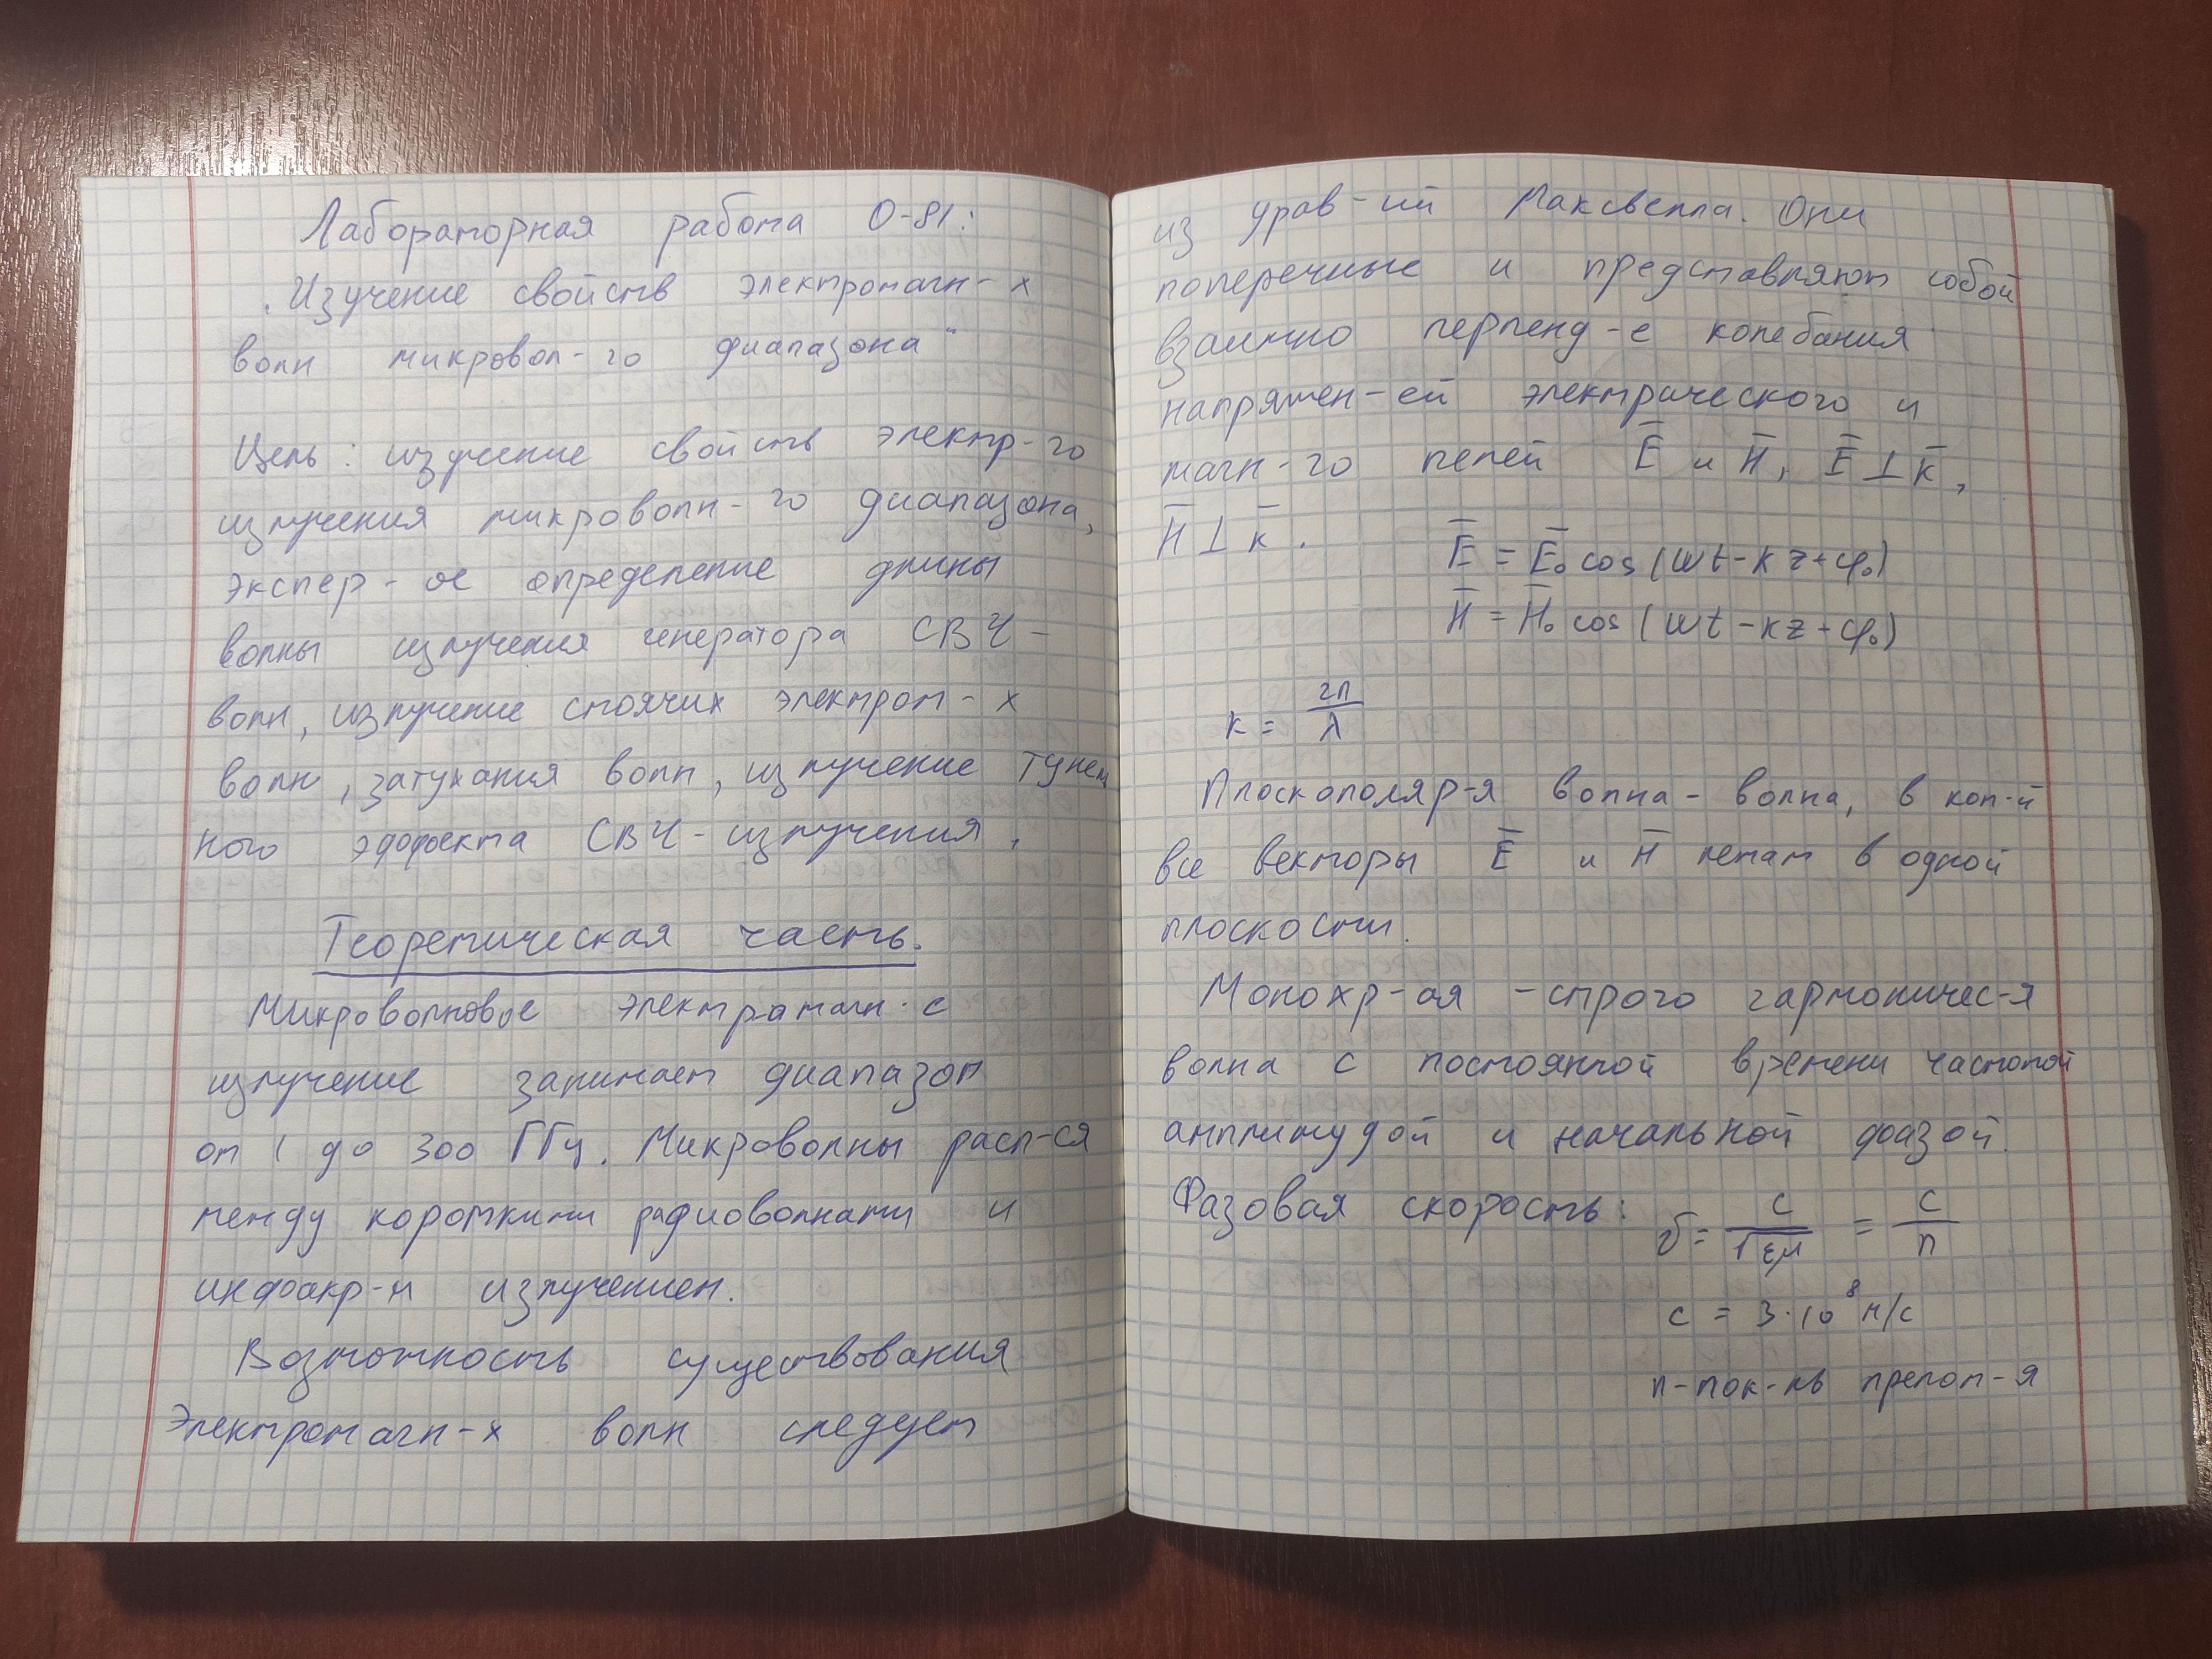 Лабораторная работа О-81:
„Изучение свойств электромагн-х
волн микровол-го диапазона“
Цель: изучение свойств электр-го
излучения микроволн-го диапазона,
экспер-ое определение длины
волны излучения генератора СВЧ-
волн, излучение стоячих электром-х
волн, затухания волн, излучение тунел
ного эффекта СВЧ-излучения.
Теоретическая часть.
Микроволновое электрамагн-е
излучение занимает диапазон
от 1 до 300 ГГц. Микроволны расп-ся
между короткими радиоволнами и
инфракр-м излучением.
Возможность существования
Электромагн-х волн следует
из урав-ий Максвелла. Они
поперечные и представляют собой
взаимно перпенд-е колебания
напряжен-ей электрического и
магн-го пелей E̅ и H̅, E̅ ⊥ k̅,
H̅ ⊥ k̅.
E̅ = E̅₀ cos (ωt - kz + φ₀)
H̅ = H̅₀ cos (ωt - kz + φ₀)
k = 2π/λ
Плоскополяр-я волна - волна, в кот-й
все векторы E̅ и H̅ лежат в одной
плоскости.
Монохр-ая - строго гармоничес-я
волна с постоянной времени частотой
амплитудой и начальной фазой.
Фазовая скорость: υ = c/√εμ = c/n
c = 3·10⁸ м/с
n - пок-ль прелом-я